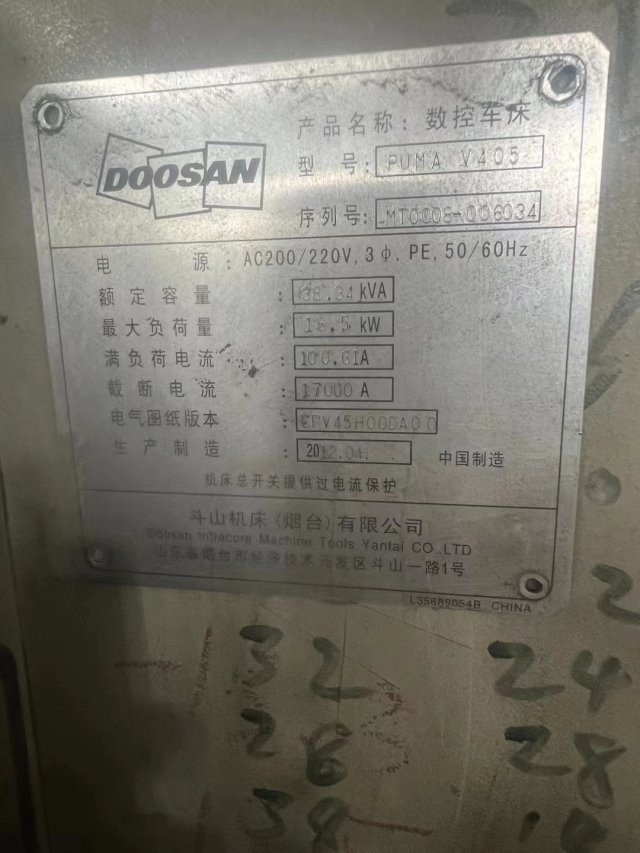 DOOSAN
产品名称: 数控车床
型号: PUMA V405
序列号: MT0008-006034
电源: AC200/220V, 3φ. PE, 50/60Hz
额定容量: 38.34kVA
最大负荷量: 18.5kW
满负荷电流: 100.61A
截断电流: 17000A
电气图纸版本: EPV45H00DA00
生产制造: 2012.04. 中国制造
机床总开关提供过电流保护
斗山机床(烟台)有限公司
Doosan Infracore Machine Tools Yantai CO.LTD
山东省烟台市经济技术开发区斗山一路1号
L35689054B, CHINA
2
32 24
26 28
38